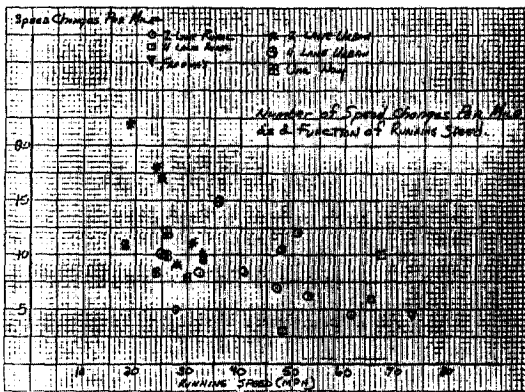 Speed Changes Per Mile
2 Lane Rural
4 Lane Rural
Freeway
2 Lane Urban
4 Lane Urban
One Way
Number of Speed Changes Per Mile
as a Function of Running Speed.
20
15
10
5
10 20 30 40 50 60 70 80
Running Speed (MPH)